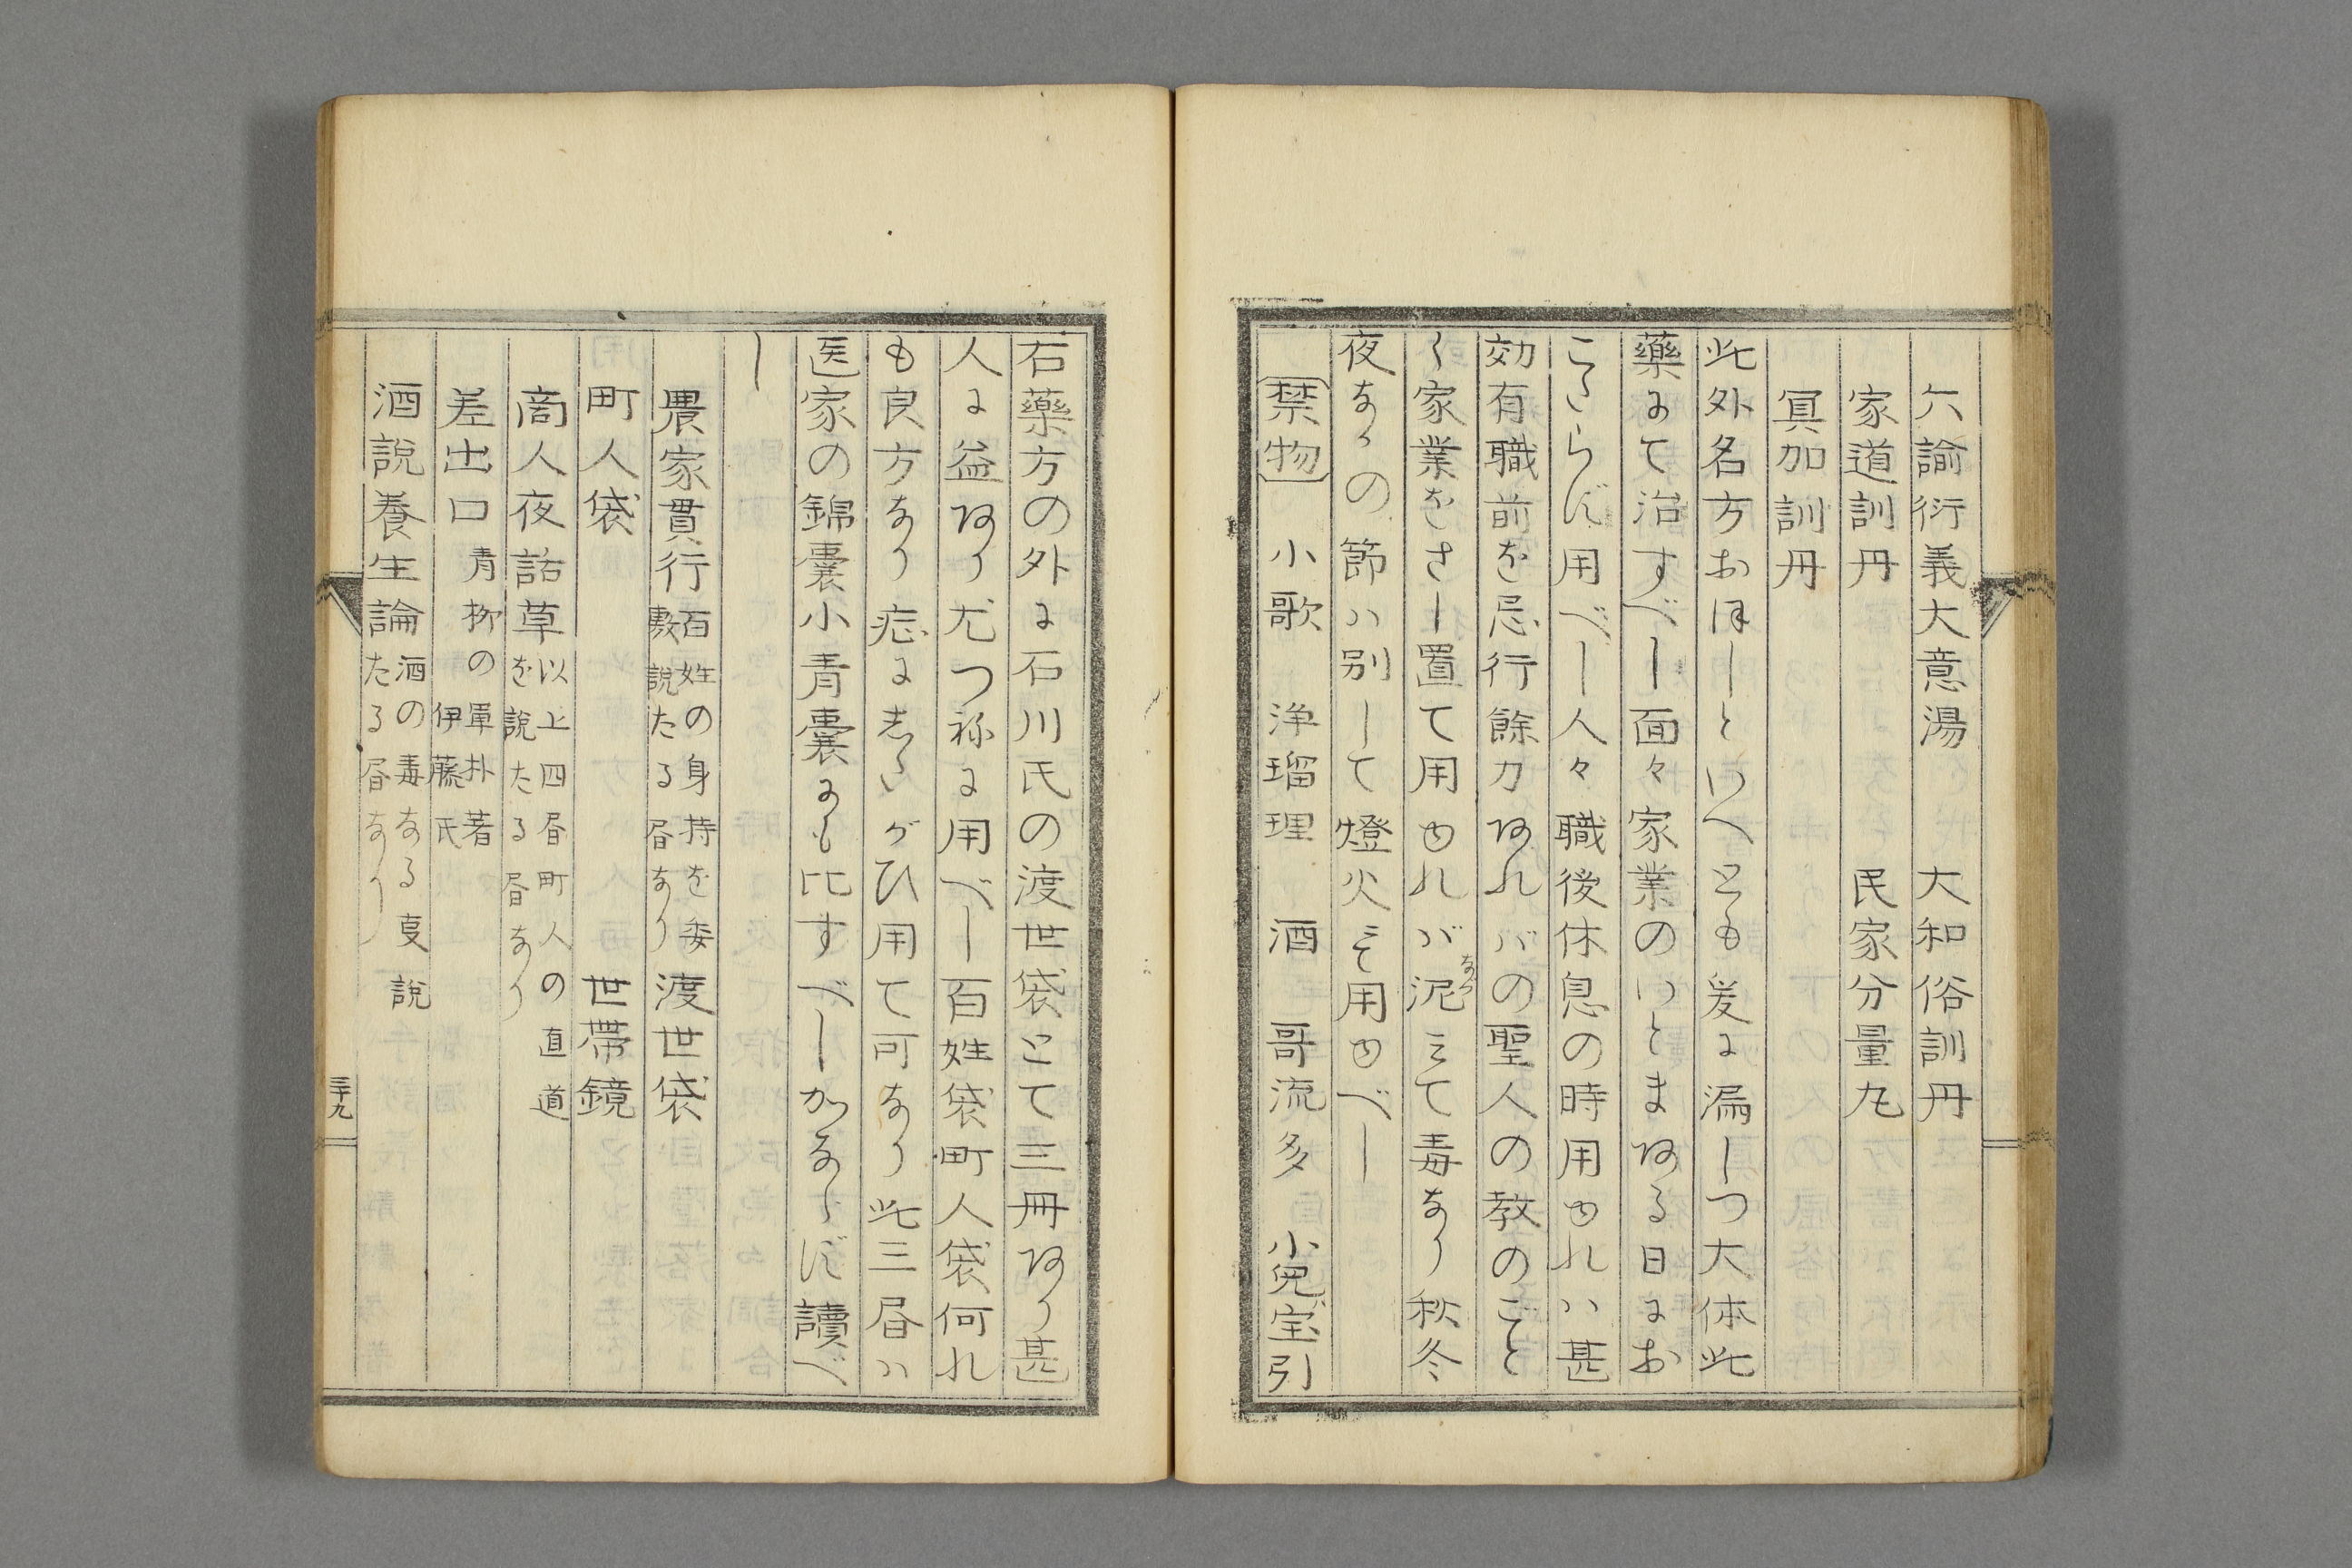 六諭衍義大意湯　大和俗訓丹
家道訓丹　民家分量丸
冥加訓丹
此外名方おほしといへども爰に漏しつ大体此
藥にて治すべし面々家業のいとまある日にお
こたらず用べし人々職後休息の時用ゆれハ甚
効有職前を忌行餘力あれバの聖人の教のごと
く家業をさし置て用ゆれバ泥ミて毒なり秋冬
夜なかの節ハ別して燈火にて用ゆべし
禁物　小歌　浄瑠理　酒　哥流多　小児宝引
右藥方の外に石川氏の渡世袋とて三冊あり甚
人に益あり尤つねに用べし百姓袋町人袋何れ
も良方なり症にしたがひ用て可なり此三昏ハ
医家の錦囊小青囊にも比すべしかならず讀べ
し
農家貫行百姓の身持を委敷説たる昏あり渡世袋
町人袋　世帯鏡
商人夜話草以上四昏町人の直道を説たる昏あり
差出口青柳の軍扑著伊藤氏
酒説養生論酒の毒ある㕝説たる昏あり
三十九